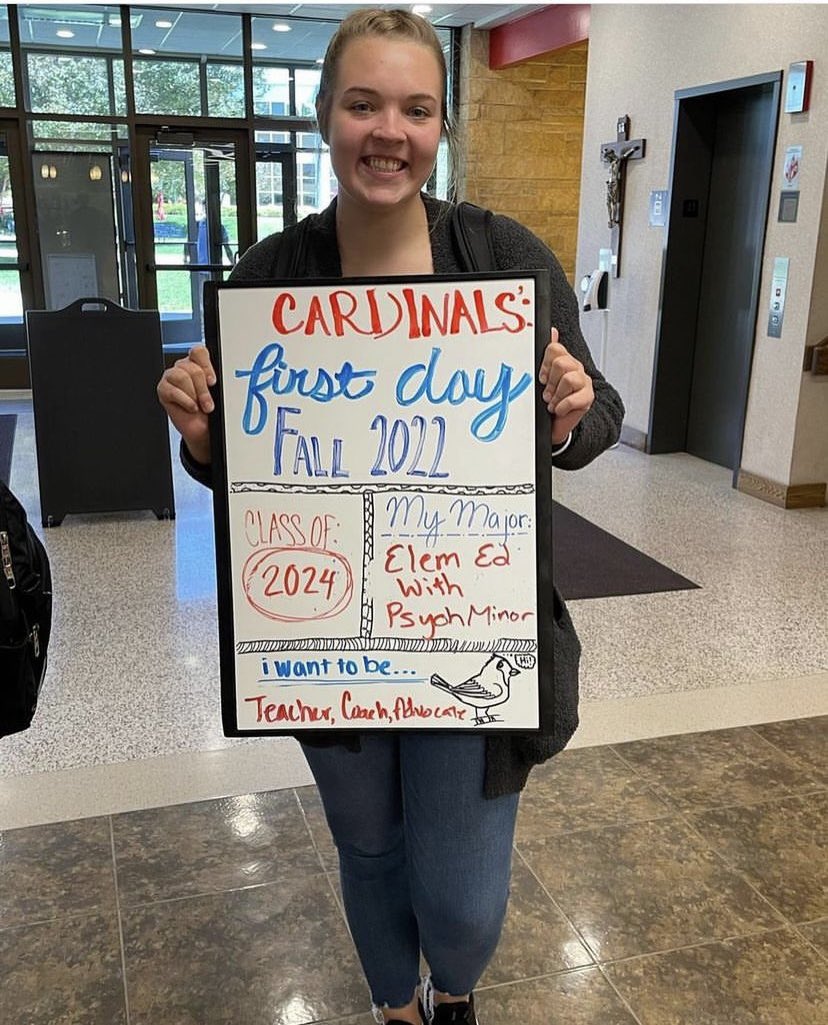 CARDINALS':
first day
FALL 2022
CLASS OF:
2024
My Major:
Elem Ed
With
Psych Minor
i want to be...
Hi!
Teacher, Coach, Advocate